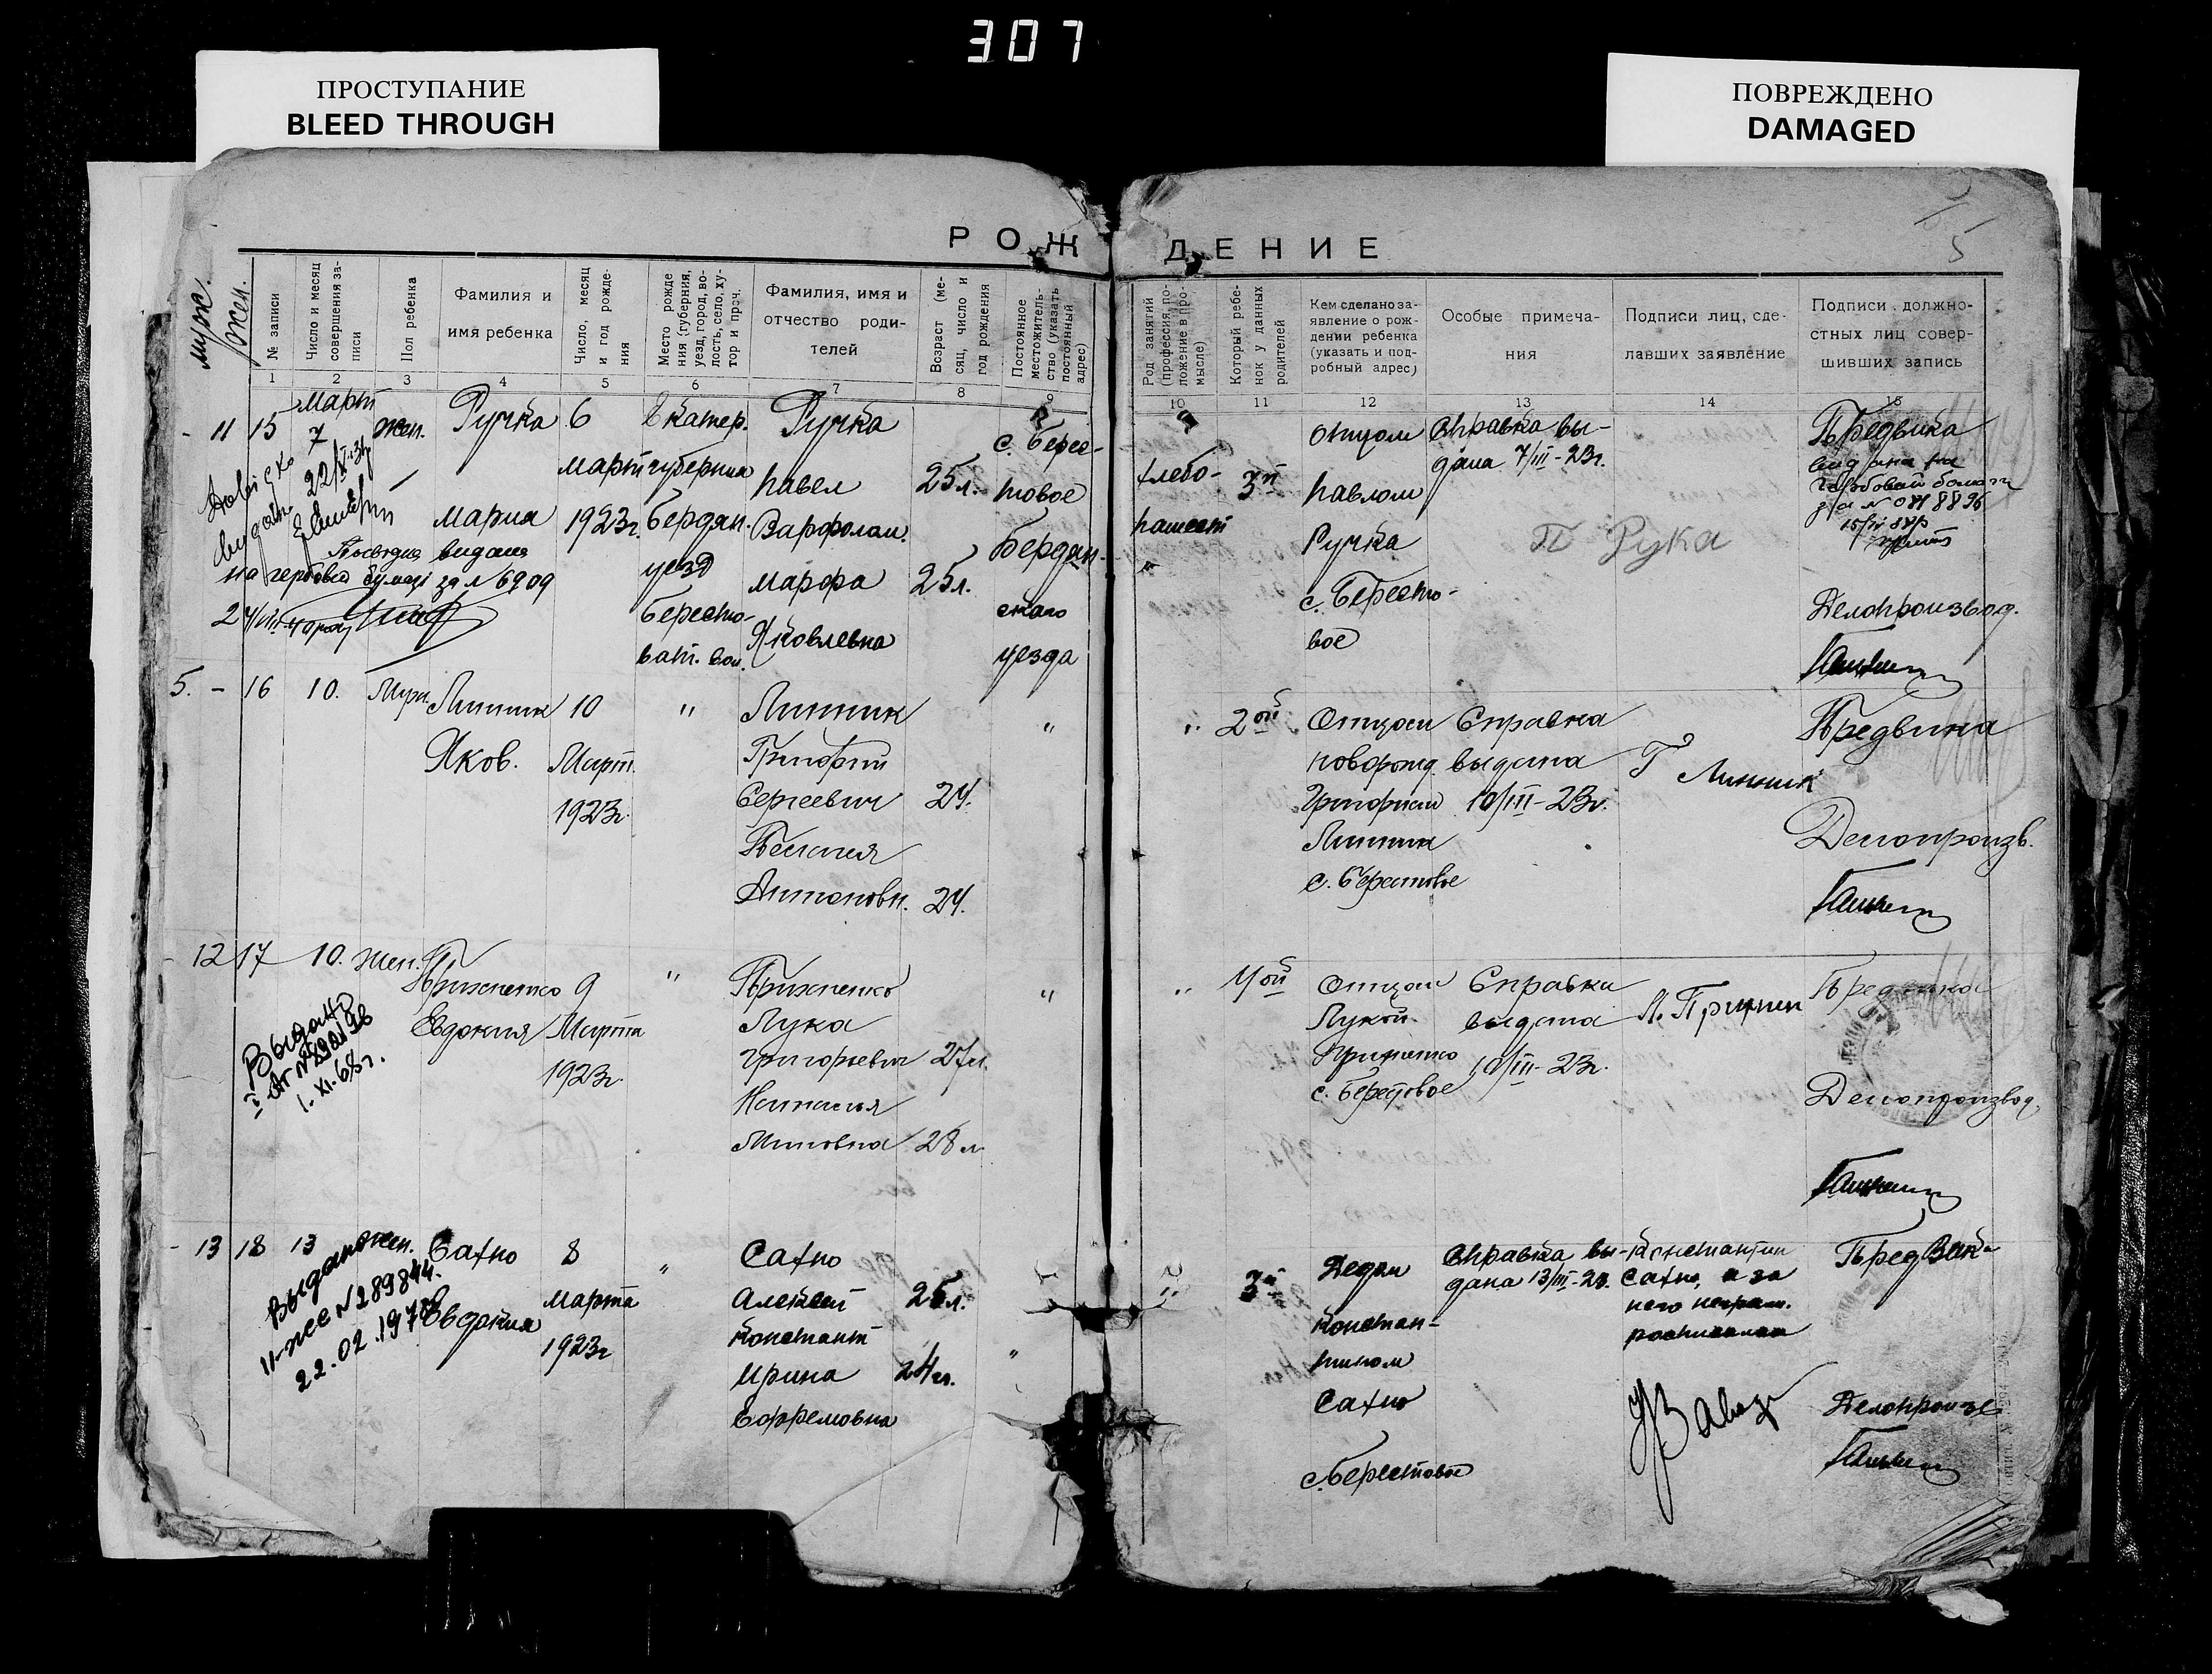 307
ПРОСТУПАНИЕ
BLEED THROUGH
ПОВРЕЖДЕНО
DAMAGED
5
РОЖДЕНИЕ
муж.
жен.
№ записи
Число и месяц совершения записи
Пол ребенка
Фамилия и
имя ребенка
Число, месяц
и год рожде-
ния
Место рожде
ния (губерния,
уезд, город, во-
лость, село, ху-
тор и проч.
Фамилия, имя и
отчество роди-
телей
Возраст (ме-
сяц, число и
год рождения
Постоянное
местожитель-
ство (указать
постоянный
адрес)
Род занятий
(профессия, по-
ложение в про-
мысле)
Который ребе-
нок у данных
родителей
Кем сделано за-
явление о рож-
дении ребенка
(указать и под-
робный адрес)
Особые примеча-
ния
Подписи лиц, сде-
лавших заявление
Подписи должно-
стных лиц совер-
шивших запись
1 2 3 4 5 6 7 8 9 10 11 12 13 14 15
11 15
Март
7
жен.
Ручка
Мария
6
март
1923г.
Екатер.
губерния
Бердян.
уезд
Бересто-
ват. вол.
Ручка
Павел
Варфолом.
Марфа
Яковлевна
25л.
25л.
с. Берес-
товое
Бердян-
ского
уезда
Хлебо-
пашест
"
3й
отцом
Павлом
Ручка
с. Бересто-
вое
Справка вы-
дана 7/III-23г.
П Рука
Предвика
Делопроизвод.
22/
видана
на гербовій бумазі за № 6909
5. - 16
10.
Муж.
Линник
Яков.
10
Март.
1923г.
"
Линник
Григорий
Сергеевич
24.
Пелагея
Антоновн.
24.
"
"
2ой
Отцом
новорожд.
Григорием
Линник
с. Берестовое
Справка
выдана
10/III-23г.
Г Линник
Предвика
Делопроизв.
12 17
10.
жен.
Евдокия
9
Марта
1923г.
"
Лука
Григорьевич
27л.
Наталья
Миновна
28 л.
"
"
Отцом
Лукой
с. Берестовое
Справка
выдана
10/III-23г.
Предвика
Делопроизвод.
Выдано
1.XI.68г.
13 18
13
жен.
Сахно
Евдокия
8
Марта
1923г
"
Сахно
Алексей
Констант
Ирина
Ефремовна
25л.
24г.
"
"
3й
Дедом
Констан-
тином
Сахно
с. Берестовое
Справка вы-
дана 13/III-23.
Константин
Сахно, а за
него неграм.
росписался
Предвик
Делопроизв
Выдано
№ 289844.
22.02.1978